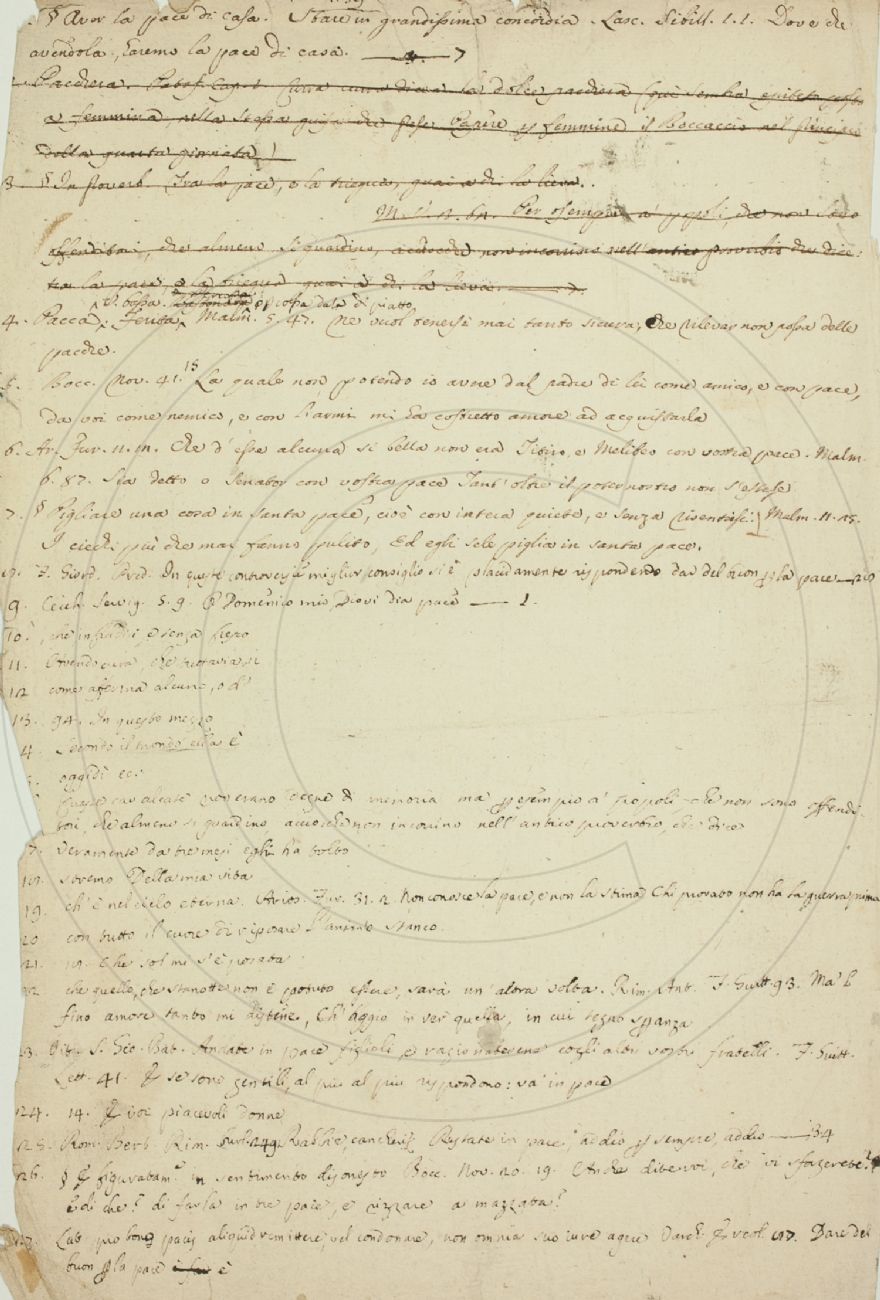 § Aver la pace di casa. Stare in grandissima concordia. Lasc. Sibill. 1.1. Dove che
avendola, haremo la pace di casa.
Pacchera. Pataff. Cap. Curra curra diceva la dolce pacchera (qui sembra epiteto
a femmina, nella stessa guisa che Papere p femmine il Boccaccio nel
della quarta giornata)
3 § In proverb. Tra la pace, e la triegua, guai a chi la lieva.
M. V. 11. 60. Per esempio a' popoli, che non sono
offenditori, che almeno si guardino, acciocchè non incorrino nell'antico proverbio che dice:
tra la pace, e la triegua guai a chi la lieva.
o cossa data di piatto
4. Pacca. Ferita, Malm. 5. 47. Ne vuol tenersi mai tanto sicura, Che rilevar non possa delle
pacche.
5. Bocc. Nov. 41. 15 La quale non potendo io avere dal padre di lei come amico, e con pace,
da voi come nemico, e con l'armi mi ha costretto amore ad acquistarla
6. Ar. Fur. 11. 12. Che d'esse alcuna sì bella non era Titiro, e Melibeo con vostra pace. Malm.
6. 87. Sia detto o Senator con vostra pace Tant' oltre il poter nostro non s'estese
7. § Pigliare una cosa in santa pace, cioè con intera quiete, e senza risentirsi. Malm. 11. 25.
I ciechi più che mai fanno pulito, Ed egli sele piglia in santa pace.
F. Giord. Pred. In queste controversie miglior consiglio si è placidamente rispondendo dar del buon p la pace
9. Cecch. Servig. 5. 9. O Domenico mio, Diovi dia pace — 1.
10. che infinchi, e senza
11. Avendo cura, che
12 come afferma alcuno, o d'
13. 94. In questo mezzo
4. Secondo il mondo ella è
oggidì ec.
Queste cavalcate non erano degne di memoria ma p esempio a' popoli che non sono offendi-
tori, che almeno si guardino, acciocchè non incorrino nell'antico proverbio, che dice
Veramente da tre mesi egli ha tolto
stremo Della mia vita
19. ch'è nel cielo eterna. Arios. Fur. 31. 2. Non conosce la pace, e non la stima Chi provato non ha la guerra prima
20 con tutto il cuore di riposare l'animo stanco.
21. 19. Che sol mi s'è
22 che quello, che stanotte non è potuto essere, sarà un'altra volta. Rim. Ant. F. Guitt. 93. Ma'l
fino amore tanto mi distene, Ch'aggio in ver quella, in cui tegno spanza
23. Vit. S. Gio. Bat. Andate in pace figlioli, e ragionatevene cogli altri vostri fratelli. F. Guitt.
Lett. 41. E se sono gentili, al più al più rispondono: va' in pace
24. 14. E voi piacevoli donne
25. Rom. Berb. Rim. burl. 249. Rabbie, cancheri Restate in pace, addio p sempre, addio — 34
26. § E figuratam.e in sentimento disonesto Bocc. Nov. 20. 19. Anche dite voi, che vi sforzerete?
E di che? di farla in tre pace, e rizzare a mazzata?
27. Lat. pro bono pacis aliquid remittere, vel condonare, non omnia suo iure agere Varch. Ercol. 197. Dare del
buon p la pace è